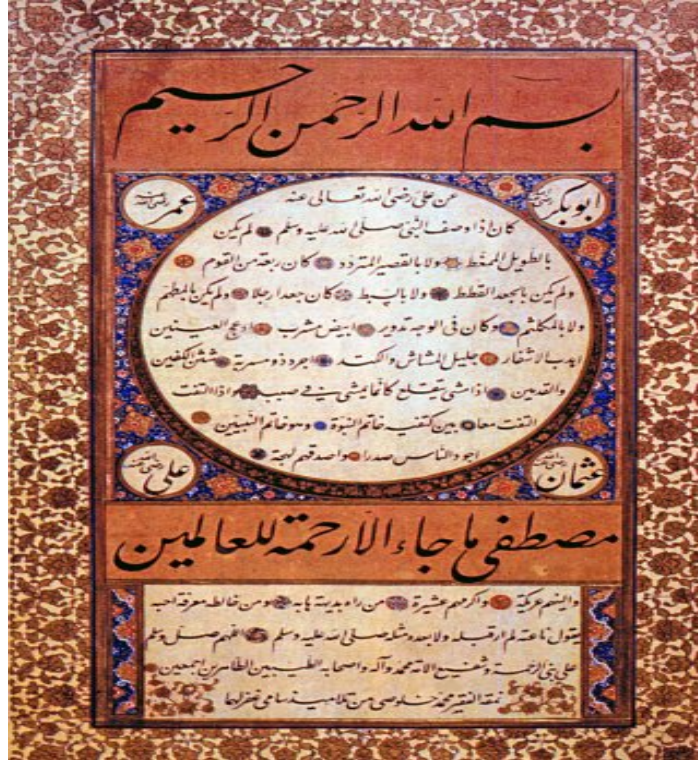 بسم الله الرحمن الرحيم
ابو بكر رضي الله عنه
عمر رضي الله عنه
عن علي رضي الله تعالى عنه
كان اذا وصف النبي صلى الله عليه وسلم لم يكن
بالطويل الممغط ولا بالقصير المتردد كان ربعة من القوم
ولم يكن بالجعد القطط ولا بالسبط كان جعدا رجلا ولم يكن بالمطهم
ولا بالمكلثم وكان في الوجه تدوير ابيض مشرب ادعج العينين
اهدب الاشفار جليل المشاش والكتد اجرد ذو مسربة شثن الكفين
والقدمين اذا مشى يتقلع كانما يمشي في صبب واذا التفت
التفت معا بين كتفيه خاتم النبوة وهو خاتم النبيين
اجود الناس صدرا واصدقهم لهجة
عثمان رضي الله عنه
علي رضي الله عنه
مصطفى ما جاء الا رحمة للعالمين
والينهم عريكة واكرمهم عشيرة من راه بديهة هابه ومن خالطه معرفة احبه
يقول ناعته لم ار قبله ولا بعده مثله صلى الله عليه وسلم اللهم صل وسلم
على نبي الرحمة وشفيع الامة محمد وآله واصحابه الطيبين الطاهرين اجمعين
نمقه الفقير محمد خلوصي من تلاميذ سامي غفر لهما